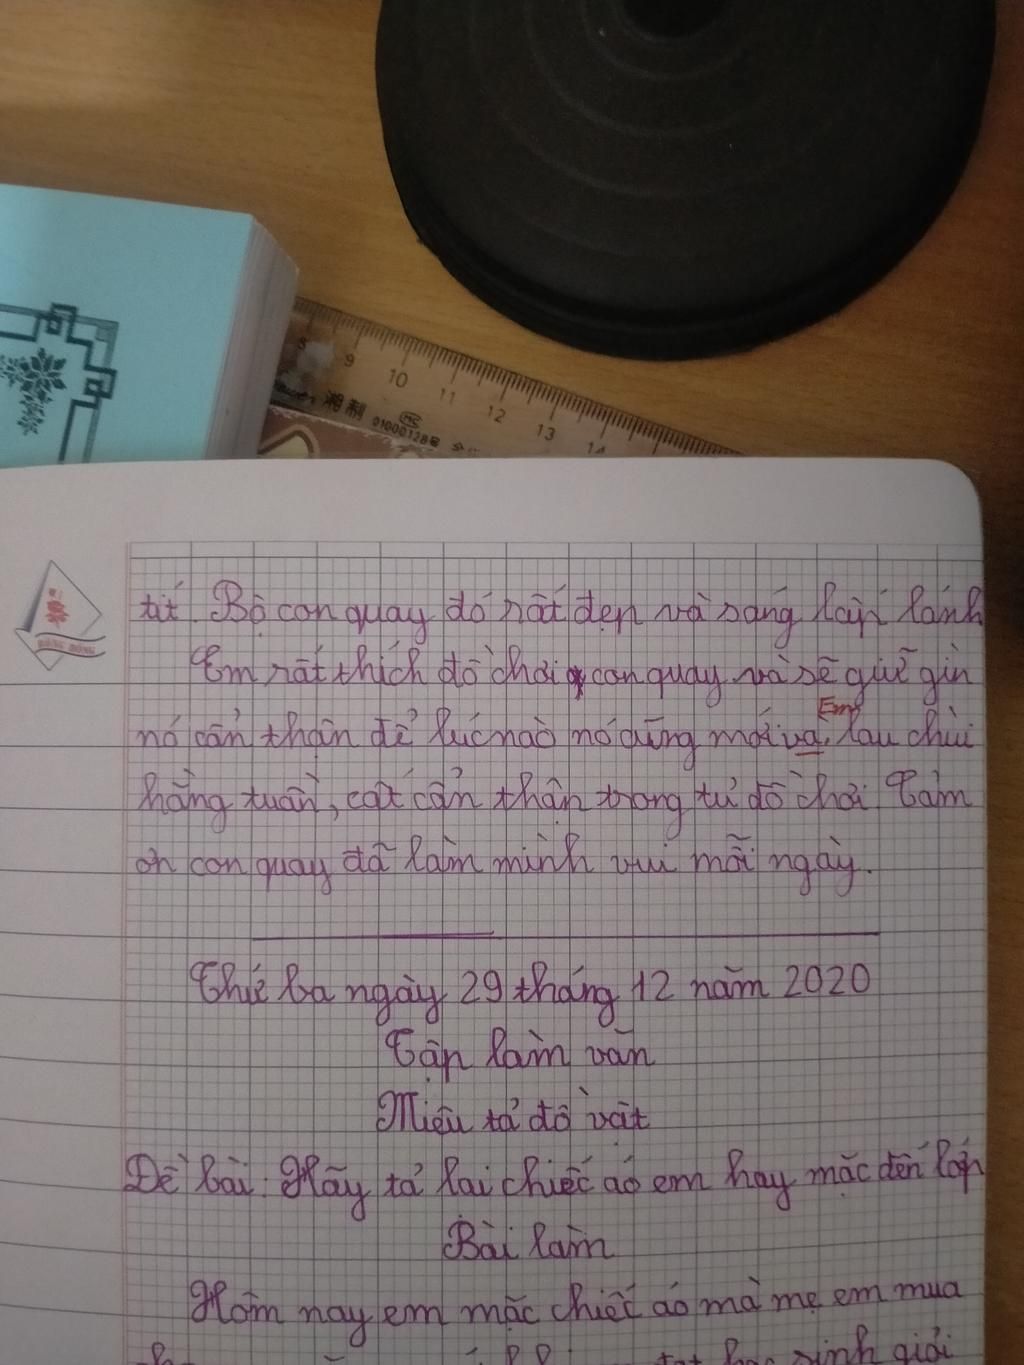 8 9 10 11 12 13 14
湘制 01000128号
HỒNG
tít. Bộ con quay đó rất đẹp và sáng lấp lánh
Em rất thích đồ chơi con quay và sẽ giữ gìn
Em
nó cẩn thận để lúc nào nó cũng mới và lau chùi
hằng tuần, cất cẩn thận trong tủ đồ chơi. Cảm
ơn con quay đã làm mình vui mỗi ngày.
Thứ ba ngày 29 tháng 12 năm 2020
Tập làm văn
Miêu tả đồ vật
Đề bài: Hãy tả lại chiếc áo em hay mặc đến lớp
Bài làm
Hôm nay em mặc chiếc áo mà mẹ em mua
học sinh giỏi